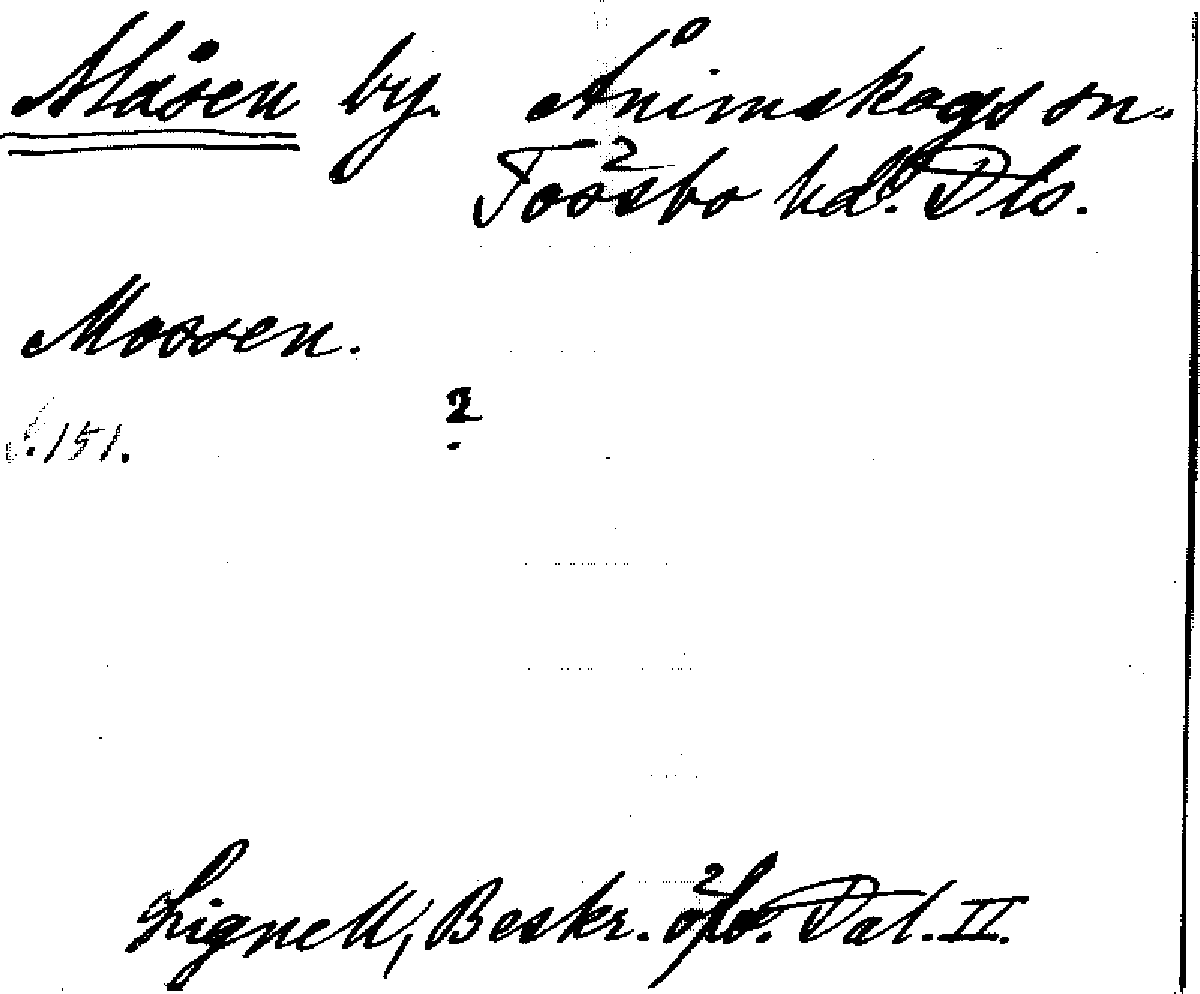 Måsen by. Ånimskogs sn.
Tössbo hd. Dls.
Moosen.
S. 151. ?
Lignell, Beskr. öfv. Dal. II.